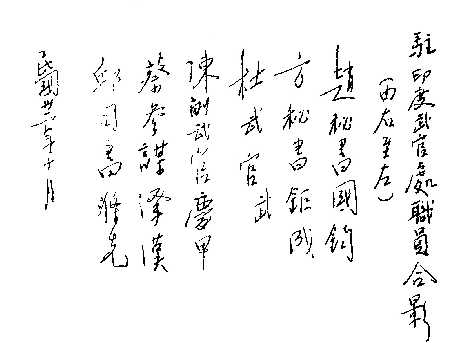 駐印度武官處職員合影
(由右至左)
趙秘書國鈞
方秘書鉅成
杜武官武
陳副武官慶甲
蔡參謀澤漢
邱司書雅光
民國卅一年十月